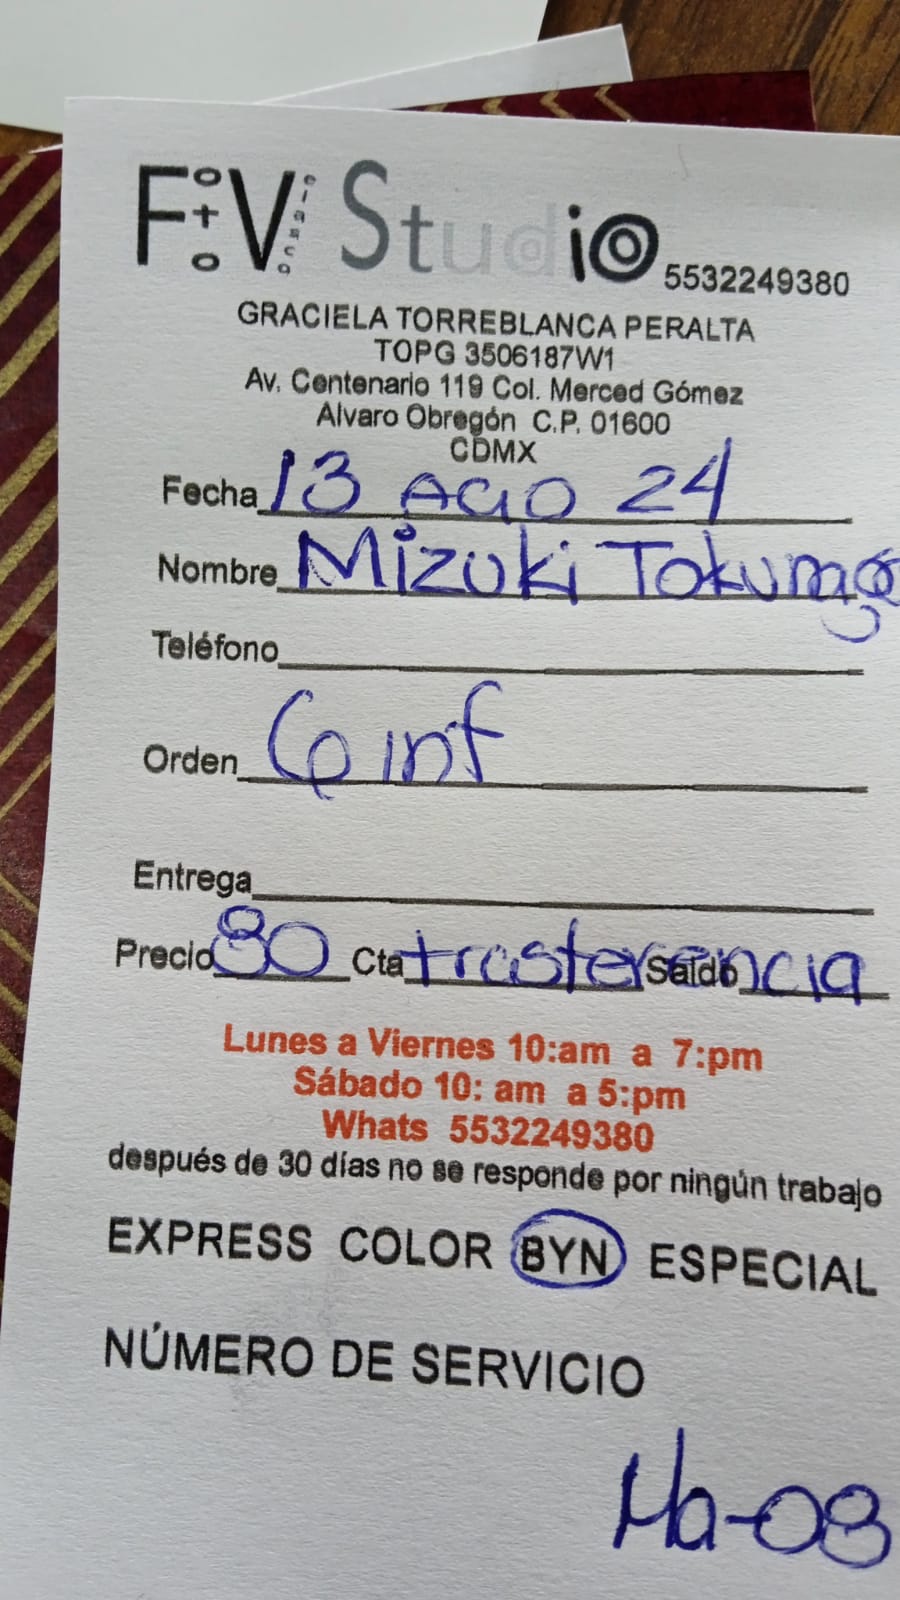 Foto Video Clasico Studio 5532249380
GRACIELA TORREBLANCA PERALTA
TOPG 3506187W1
Av. Centenario 119 Col. Merced Gómez
Alvaro Obregón C.P. 01600
CDMX
Fecha 13 AGO 24
Nombre Mizuki
Teléfono
Orden 6 inf
Entrega
Precio 80 Cta trasferencia Saldo
Lunes a Viernes 10:am a 7:pm
Sábado 10: am a 5:pm
Whats 5532249380
después de 30 días no se responde por ningún trabajo
EXPRESS COLOR BYN ESPECIAL
NÚMERO DE SERVICIO
Ma-03